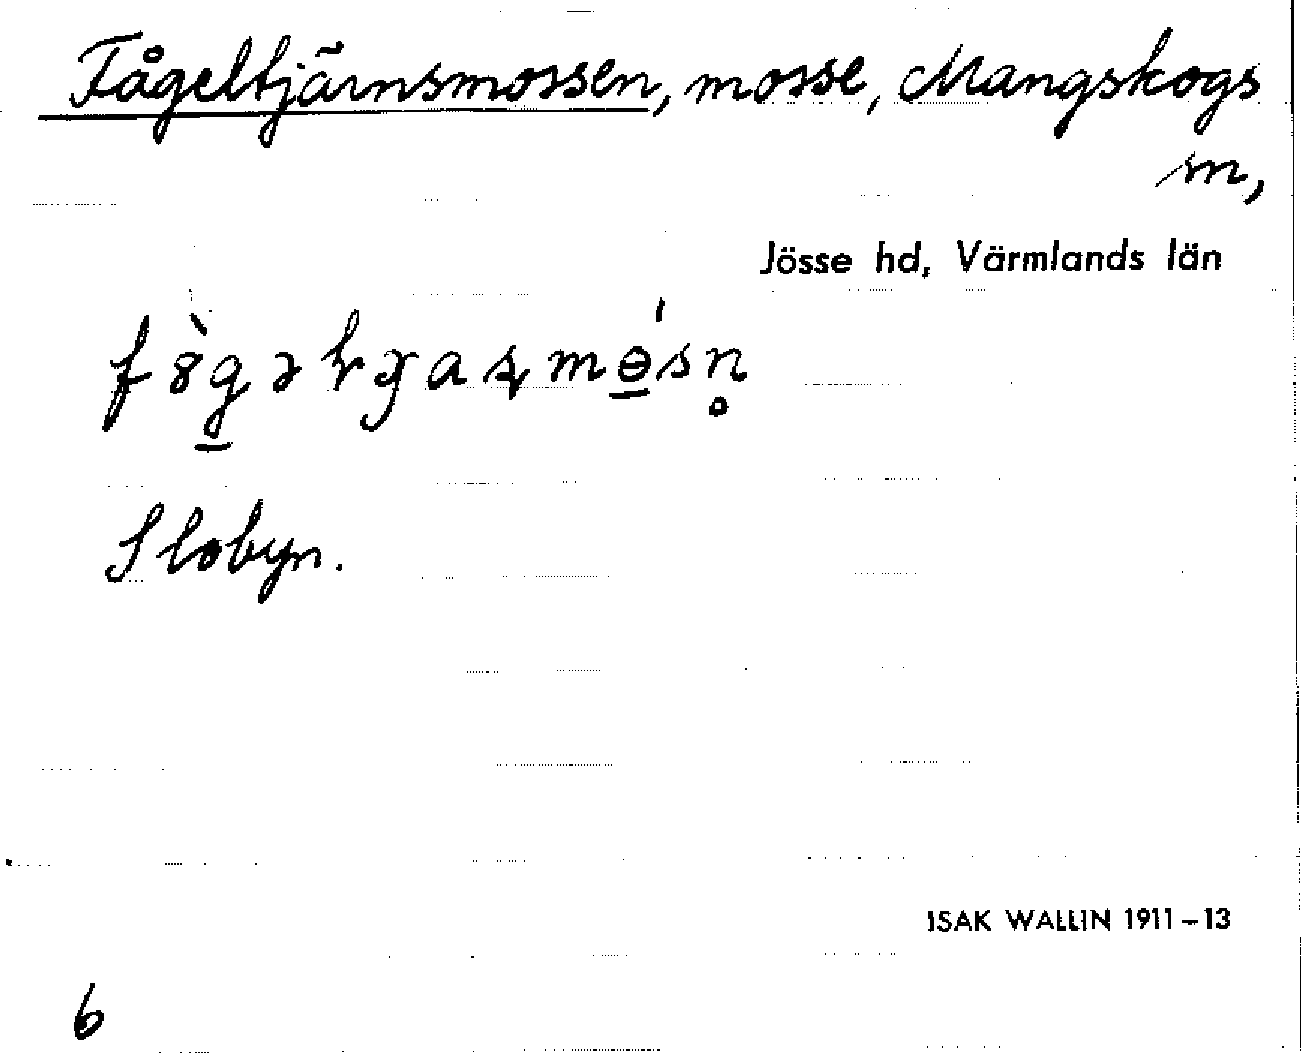 Fågeltjärnsmossen, mosse, Mangskogs
sn,
Jösse hd, Värmlands län
Slobyn.
ISAK WALLIN 1911–13
6